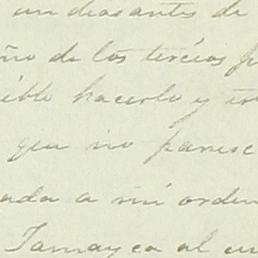 un dias antes de
ño de los tercios p
ible hacerlo y
que no paresc
ada a mi orden
Tamayca al